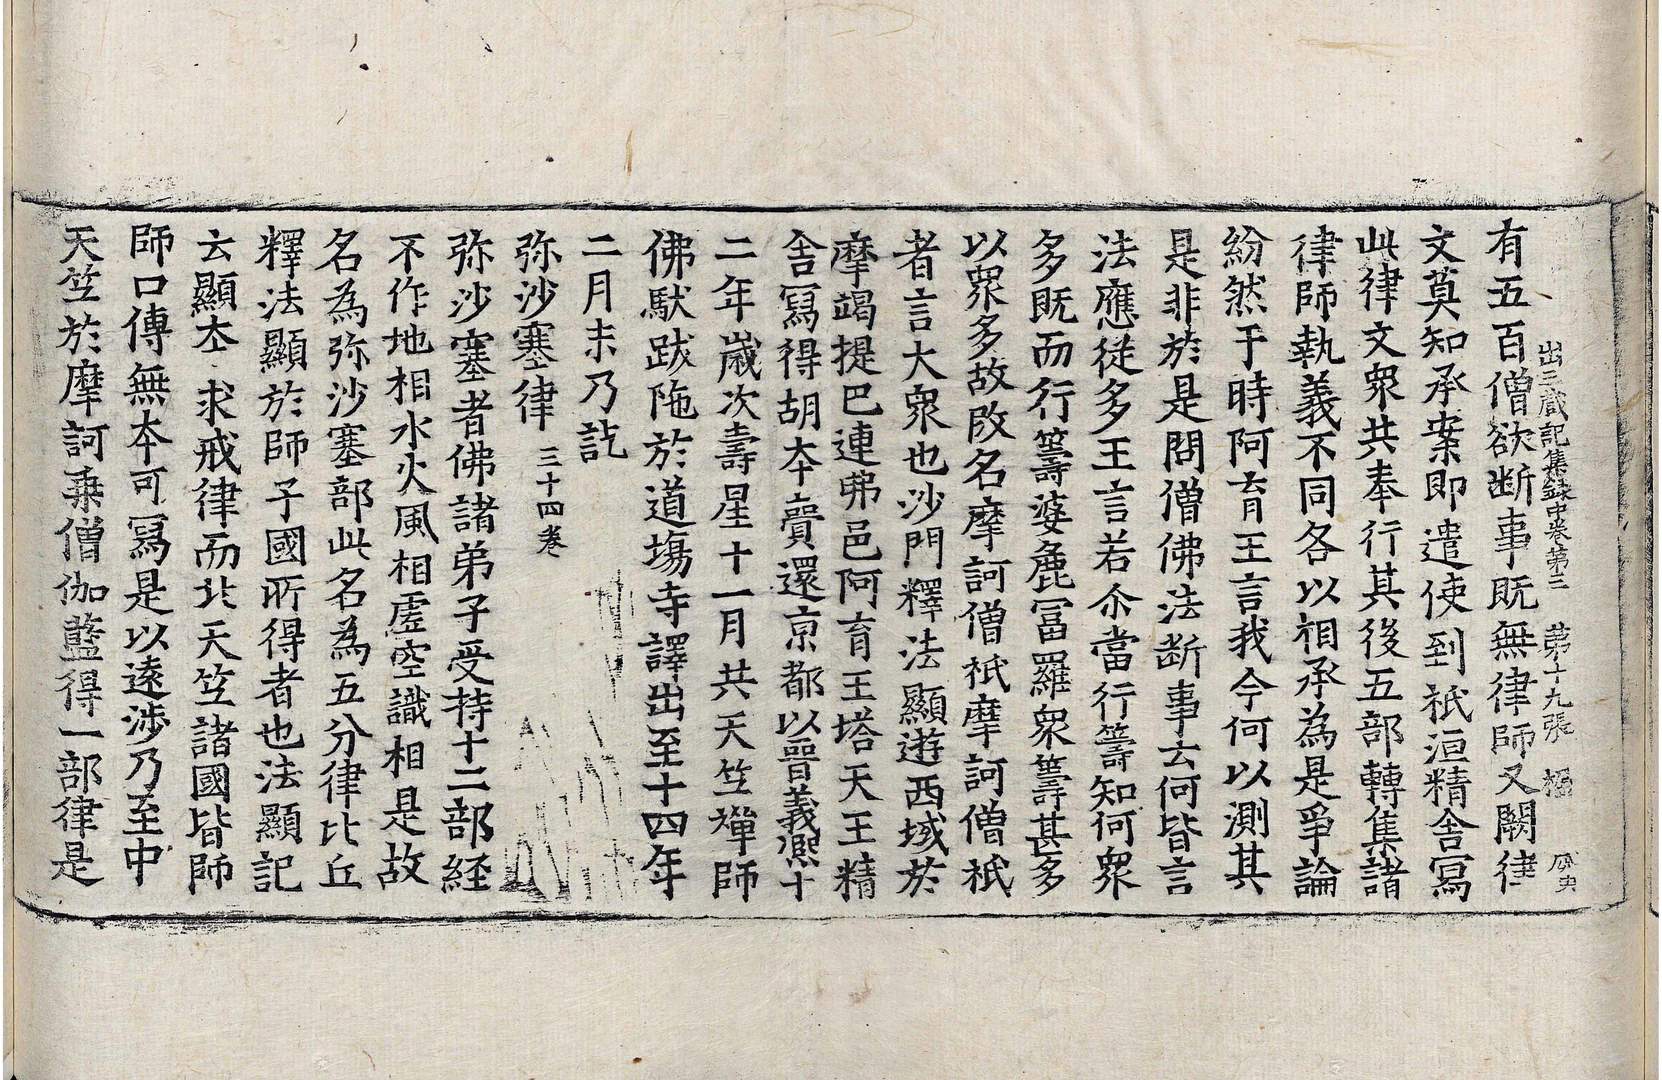 出三藏記集録中卷第三 第十九張
有五百僧欲断事既無律師又闕律
文莫知承案即遣使到祇洹精舎寫
此律文衆共奉行其後五部轉集諸
律師執義不同各以相承為是爭論
紛然于時阿育王言我今何以測其
是非於是問僧佛法断事云何皆言
法應從多王言若尒當行籌知何衆
多既而行籌婆麁冨羅衆籌甚多
以衆多故改名摩訶僧祇摩訶僧祇
者言大衆也沙門釋法顯遊西域於
摩竭提巴連弗邑阿育王塔天王精
舎寫得胡夲賷還京都以晉義熙十
二年歲次壽星十一月共天竺禪師
佛馱跋陁於道塲寺譯出至十四年
二月末乃訖
弥沙塞律 三十四卷
弥沙塞者佛諸弟子受持十二部経
不作地相水火風相虗空識相是故
名為弥沙塞部此名為五分律比丘
釋法顯於師子國所得者也法顯記
云顯夲求戒律而北天竺諸國皆師
師口傳無夲可寫是以遠涉乃至中
天竺於摩訶乗僧伽藍得一部律是